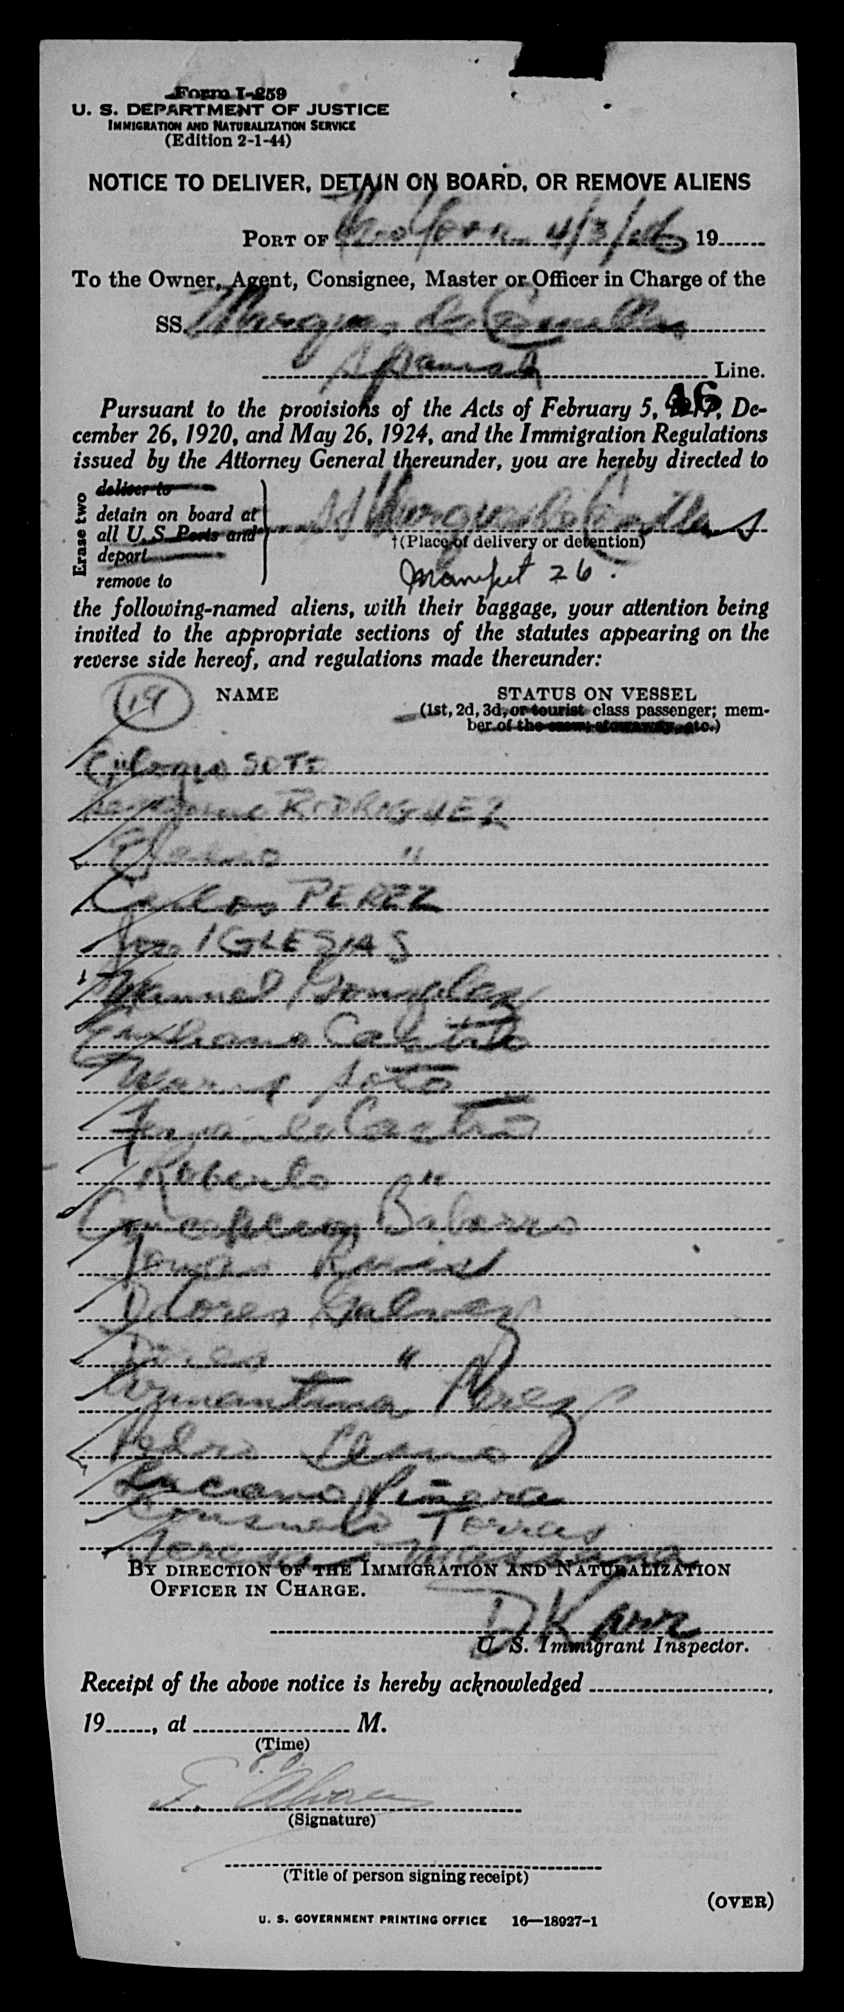 Form I-259
U. S. DEPARTMENT OF JUSTICE
IMMIGRATION AND NATURALIZATION SERVICE
(Edition 2-1-44)
NOTICE TO DELIVER, DETAIN ON BOARD, OR REMOVE ALIENS
PORT OF New York 4/3/46 19
To the Owner, Agent, Consignee, Master or Officer in Charge of the
SS. Marques de Comillas
Spanish Line.
46
Pursuant to the provisions of the Acts of February 5, 1917, De-
cember 26, 1920, and May 26, 1924, and the Immigration Regulations
issued by the Attorney General thereunder, you are hereby directed to
Erase two
deliver to
detain on board at
all U. S. Ports and
depart
remove to
SS Marques de Comillas
†(Place of delivery or detention)
Manifest 26.
the following-named aliens, with their baggage, your attention being
invited to the appropriate sections of the statutes appearing on the
reverse side hereof, and regulations made thereunder:
19 NAME STATUS ON VESSEL
(1st, 2d, 3d, or tourist class passenger; mem-
ber of the crew, stowaway, etc.)
SOTO
RODRIGUEZ
"
Carlos PEREZ
IGLESIAS
Manuel Gonzalez
Castro
Soto
Castro
Roberto "
Concepcion
Tomas
Dolores Galvez
"
Perez
Pedro Llano
Luciano Piñera
Consuelo Torres
Teresa
BY DIRECTION OF THE IMMIGRATION AND NATURALIZATION
OFFICER IN CHARGE.
D Karr
U. S. Immigrant Inspector.
Receipt of the above notice is hereby acknowledged
19, at M.
(Time)
(Signature)
(Title of person signing receipt)
(OVER)
U. S. GOVERNMENT PRINTING OFFICE 16—18927-1